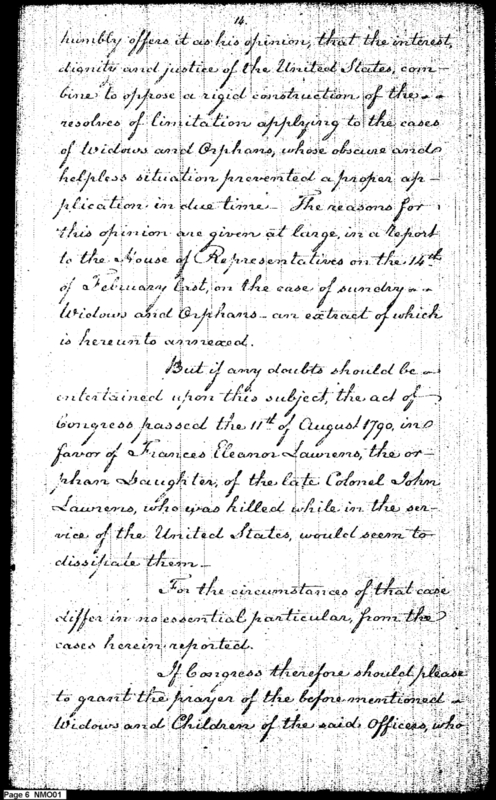 14.
humbly offers it as his opinion, that the interest,
dignity and justice of the United States, com-
bine to oppose a rigid construction of the - -
resolves of limitation applying to the cases
of Widows and Orphans, whose obscure and
helpless situation prevented a proper ap-
plication in due time - The reasons for
this opinion are given at large, in a report
to the House of Representatives on the 14th
of February last, on the case of sundry - -
Widows and Orphans - an extract of which
is hereunto annexed.
But if any doubts should be -
entertained upon this subject, the act of
Congress passed the 11th of August 1790, in
favor of Frances Eleanor Lawrens, the or-
phan Daughter, of the late Colonel John
Lawrens, who was killed while in the ser-
vice of the United States, would seem to
dissipate them -
For the circumstances of that case
differ in no essential particular, from the
cases herein reported.
If Congress therefore should please
to grant the prayer of the before mentioned -
Widows and Children of the said Officers, who
Page 6 NMO01